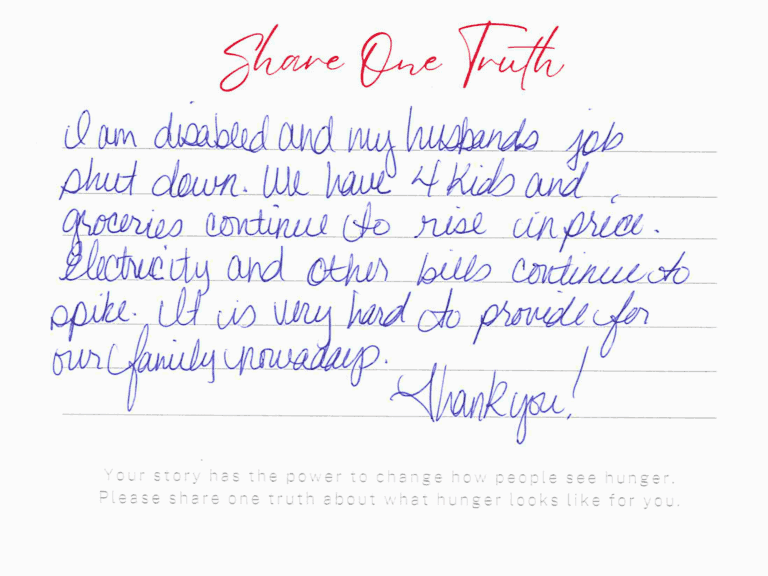 Share One Truth
I am disabled and my husbands job
shut down. We have 4 kids and
groceries continue to rise in price.
Electricity and other bills continue to
spike. It is very hard to provide for
our family nowadays.
Thank you!
Your story has the power to change how people see hunger.
Please share one truth about what hunger looks like for you.